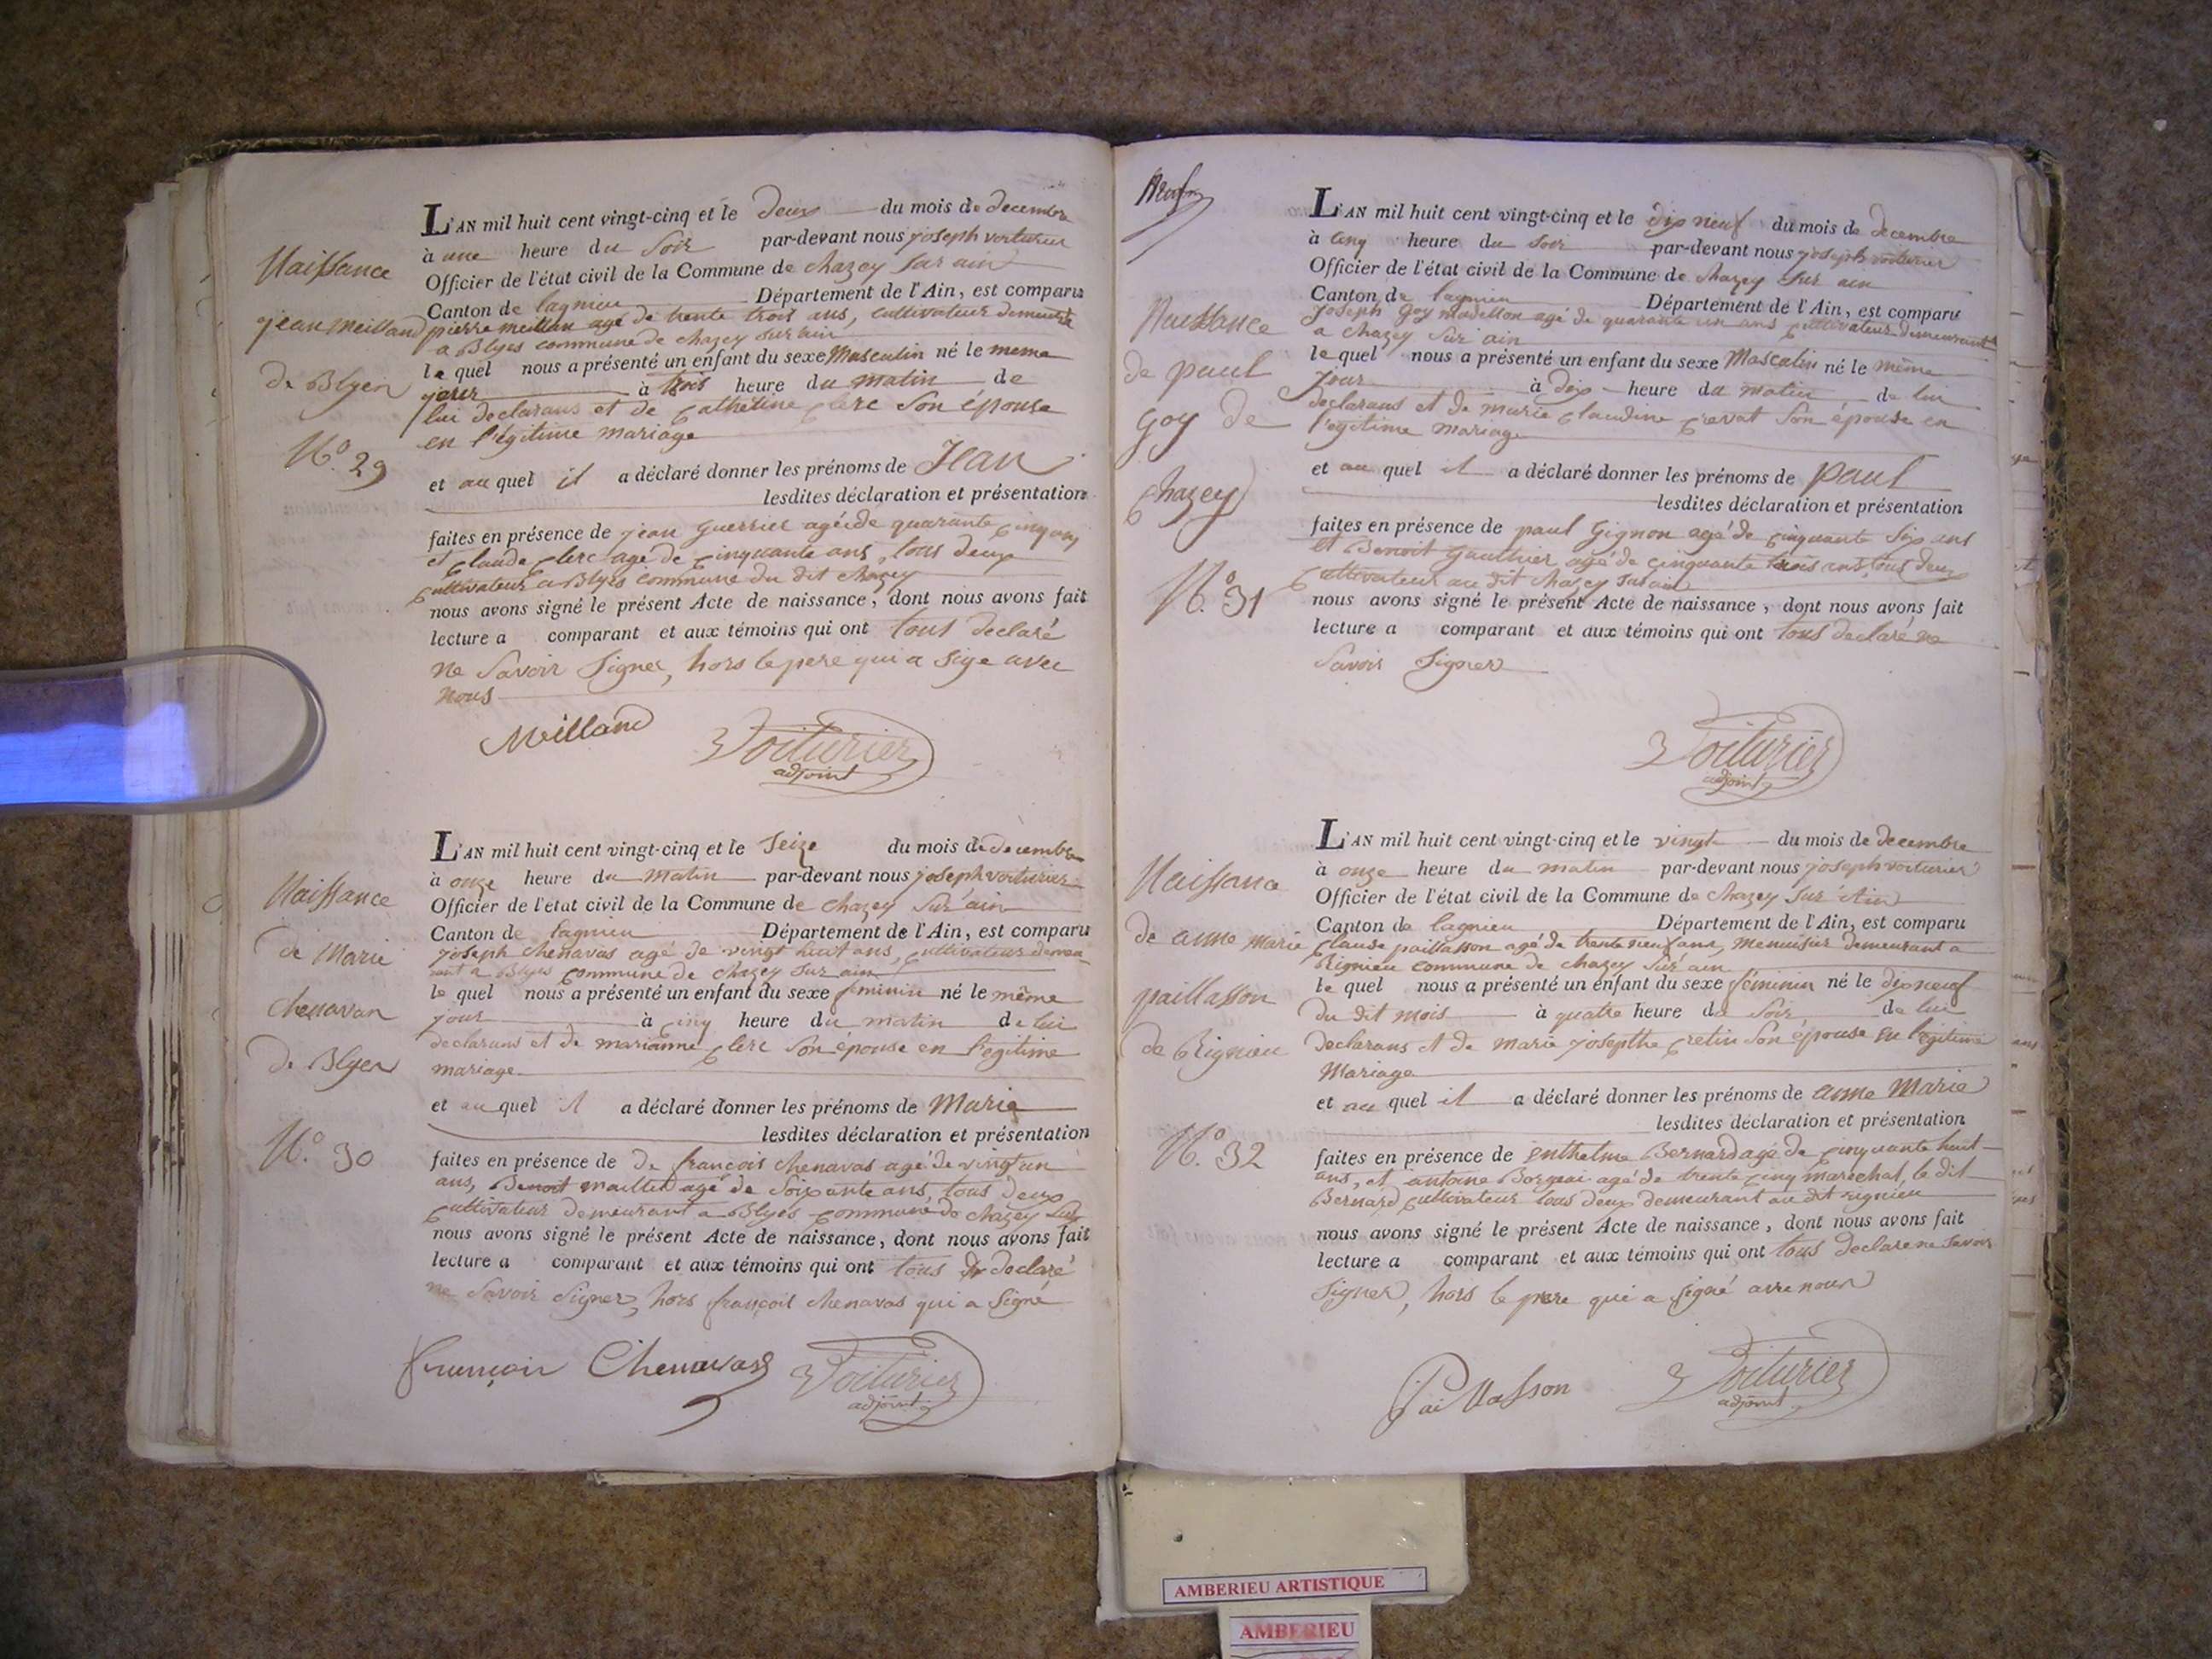 Naissance
jean Meilland
de Blyes
N.º 29
L'AN mil huit cent vingt-cinq et le deux du mois de decembre
à une heure du soir par-devant nous joseph voiturier
Officier de l'état civil de la Commune de chazey sur ain
Canton de lagnieu Département de l'Ain, est comparu
pierre meillan agé de trente trois ans, cultivateur demeurant
a Blyes commune de chazey sur ain
le quel nous a présenté un enfant du sexe Masculin né le meme
jour à trois heure du matin de
lui declarans et de catherine clerc son épouse
en l'égitime mariage
et au quel il a déclaré donner les prénoms de Jean
lesdites déclaration et présentation
faites en présence de jean guerrier agé de quarante cinq ans
et claude clerc agé de cinquante ans, tous deux
cultivateur a Blyes commune du dit chazey
nous avons signé le présent Acte de naissance, dont nous avons fait
lecture a comparant et aux témoins qui ont tous declaré
ne savoir signer, hors le pere qui a sige avec
nous
Meilland Voiturier
adjoint
Naissance
de Marie
chenavas
de Blyes
N.º 30
L'AN mil huit cent vingt-cinq et le seize du mois de decembre
à onze heure du matin par-devant nous joseph voiturier
Officier de l'état civil de la Commune de chazey sur ain
Canton de lagnieu Département de l'Ain, est comparu
joseph chenavas agé de vingt huit ans, cultivateur demeu-
rant a Blyes commune de chazey sur ain
le quel nous a présenté un enfant du sexe féminin né le même
jour à cinq heure du matin de lui
declarans et de marianne clerc son epouse en l'égitime
mariage
et au quel il a déclaré donner les prénoms de Marie
lesdites déclaration et présentation
faites en présence de de françois chenavas agé de vingt un
ans, Benoit maillet agé de soixante ans, tous deux
cultivateur demeurant a Blyes commune de chazey sur
nous avons signé le présent Acte de naissance, dont nous avons fait
lecture a comparant et aux témoins qui ont tous declaré
ne savoir signer, hors françois chenavas qui a signé
françois Chenavas Voiturier
adjoint
Naissance
de paul
goy de
chazey
N.º 31
L'AN mil huit cent vingt-cinq et le dix neuf du mois de decembre
à cinq heure du soir par-devant nous joseph voiturier
Officier de l'état civil de la Commune de chazey sur ain
Canton de lagnieu Département de l'Ain, est comparu
joseph goy modellon agé de quarante un ans cultivateur demeurant
a chazey sur ain
le quel nous a présenté un enfant du sexe Masculin né le même
jour à dix heure du matin, de lui
declarans et de marie claudine crevat son épouse en
l'égitime mariage
et au quel il a déclaré donner les prénoms de paul
lesdites déclaration et présentation
faites en présence de paul gignon agé de cinquante six ans
et Benoit gauthier agé de cinquante trois ans, tous deux
cultivateur au dit chazey sur ain
nous avons signé le présent Acte de naissance, dont nous avons fait
lecture a comparant et aux témoins qui ont tous declaré ne
savoir signer
Voiturier
adjoint
Naissance
de anne marie
paillasson
de Rignieu
N.º 32
L'AN mil huit cent vingt-cinq et le vingt du mois de decembre
à onze heure du matin par-devant nous joseph voiturier
Officier de l'état civil de la Commune de chazey sur Ain
Canton de lagnieu Département de l'Ain, est comparu
claude paillasson agé de trente neuf ans, menuisier demeurant a
Rignieu commune de chazey sur ain
le quel nous a présenté un enfant du sexe féminin né le dix neuf
du dit mois à quatre heure du soir, de lui
declarans et de marie josepthe cretin son épouse en l'egitime
Mariage
et au quel il a déclaré donner les prénoms de anne Marie
lesdites déclaration et présentation
faites en présence de enthelme Bernard agé de cinquante huit
ans, et antoine Borgeai agé de trente cinq marechal, le dit
Bernard cultivateur tous deux demeurant au dit rignieu
nous avons signé le présent Acte de naissance, dont nous avons fait
lecture a comparant et aux témoins qui ont tous declare ne savoir
signer, hors le pere qui a signé avec nous
Paillasson Voiturier
adjoint
AMBERIEU ARTISTIQUE
AMBERIEU